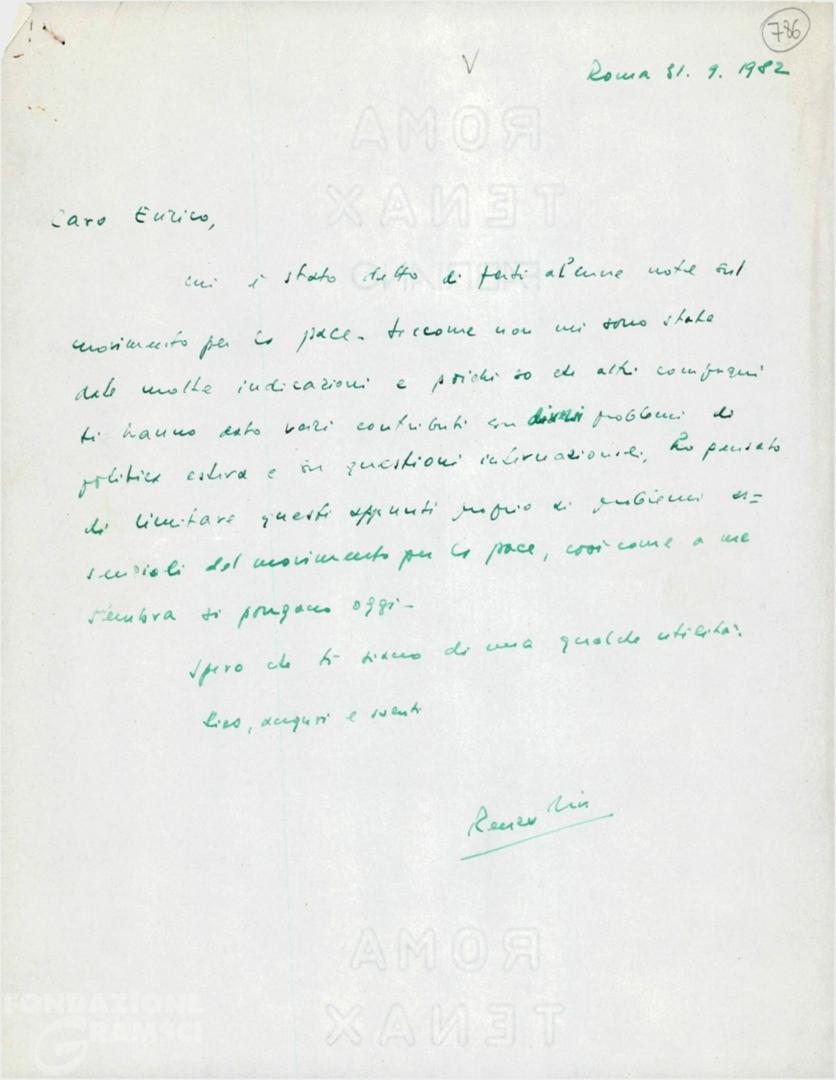 786
V
Roma 31. 9. 1982
ROMA
TENAX
Caro Enrico,
mi è stato detto di farti alcune note sul
FABRIANO
movimento per la pace. Siccome non mi sono state
date molte indicazioni e poiché so che altri compagni
ti hanno dato vari contributi su diversi problemi di
politica estera e su questioni internazionali, ho pensato
di limitare questi appunti proprio ai problemi es=
senziali del movimento per la pace, così come a me
sembra si pongano oggi.
Spero che ti siano di una qualche utilità.
Ciao, auguri e avanti
Renzo
ROMA
TENAX
FONDAZIONE
GRAMSCI